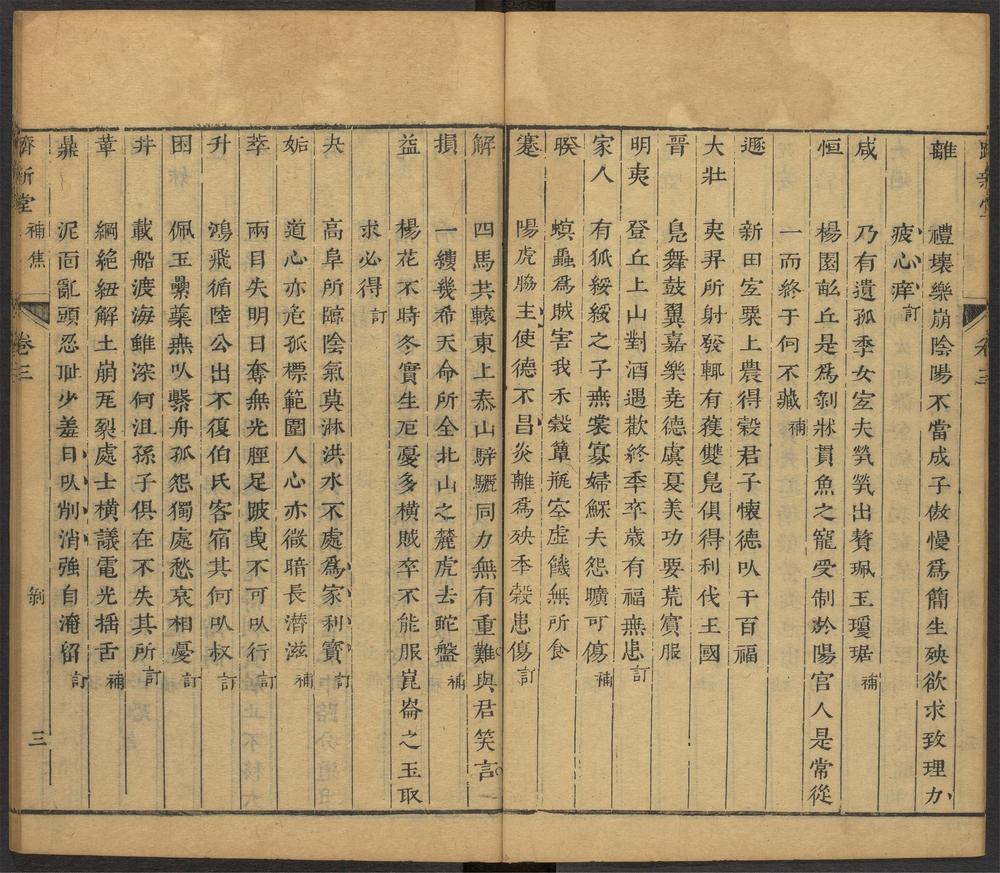 離 禮壞樂崩陰陽不當成子傲慢爲簡生殃欲求致理力
疲心痒訂
咸 乃有遺孤季女室夫煢煢出贅珮玉瓊琚補
恒 楊園畝丘是爲剝牀貫魚之寵受制於陽宮人是常從
一而終于何不臧補
遯 新田宜粟上農得穀君子懷德㕥干百福
大壯 夷羿所射發輒有獲雙鳧俱得利伐王國
晉 鳧舞鼓翼嘉樂堯德虞夏美功要荒賓服
明夷 登丘上山對酒遇歡終季卒歲有福無患訂
家人 有狐綏綏之子無裳寡婦鰥夫怨曠可傷補
睽 螟蟲爲賊害我禾穀簞瓶空虛饑無所食
蹇 陽虎脇主使德不昌炎離爲殃季穀患傷訂
解 四馬共轅東上泰山騂驪同力無有重難與君笑言
損 一縷幾希天命所全北山之麓虎去蛇盤補
益 楊花不時冬實生危憂多橫賊卒不能服崑崙之玉取
求必得訂
夬 高阜所臨陰氣莫淋洪水不處爲家利寶訂
姤 道心亦危孤標範圍人心亦微暗長潛滋補
萃 兩目失明日奪無光脛足跛曳不可㕥行訂
升 鴻飛循陸公出不復伯氏客宿其何㕥杈訂
困 佩玉橤蘂無㕥繫舟孤怨獨處愁哀相憂訂
井 載船渡海雖深何沮孫子俱在不失其所訂
革 綱絶紐解土崩瓦裂處士橫議電光括舌補
鼎 泥面亂頭忍恥少羞日㕥削消強自淹留訂
補焦 卷三 剝 三